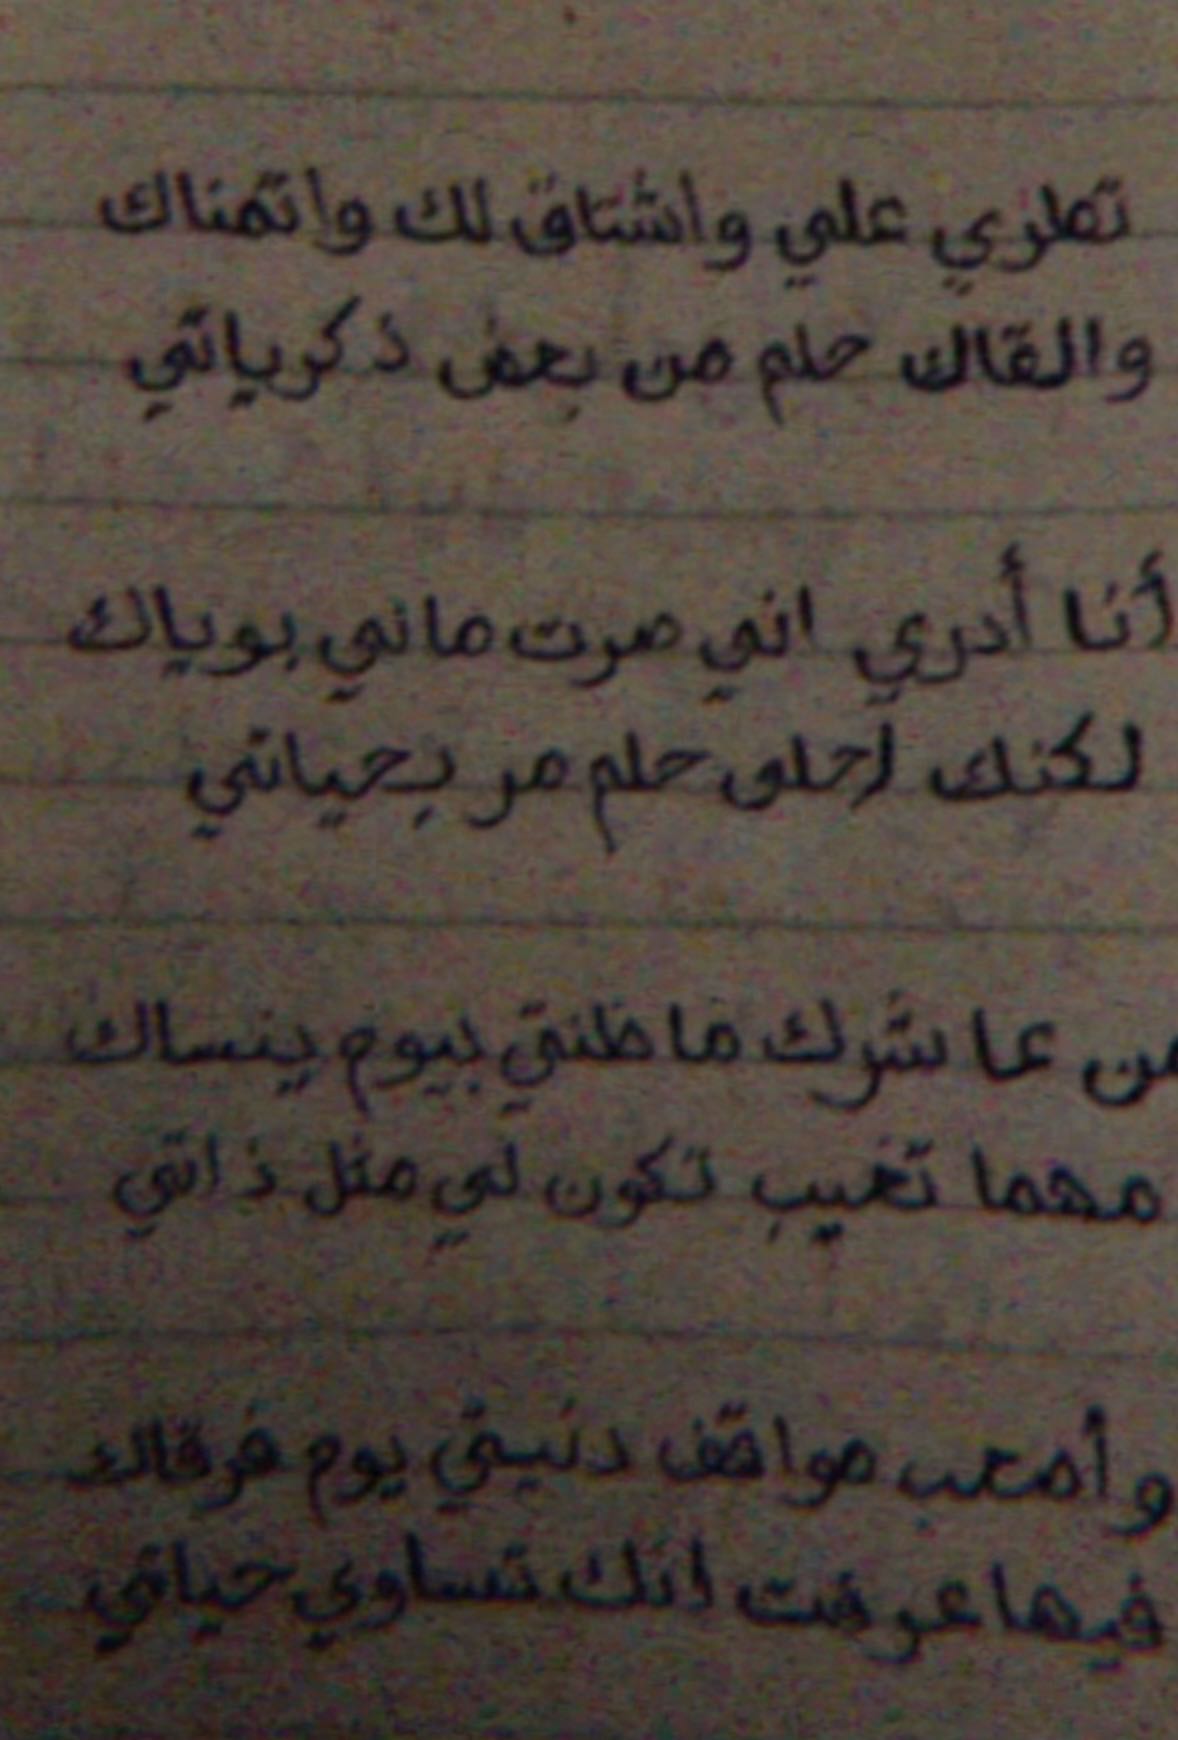 تطري علي واشتاق لك واتمناك
والقاك حلم من بعض ذكرياتي
أنا أدري اني صرت ماني بوياك
لكنك احلى حلم مر بحياتي
من عاشرك ماظنتي بيوم ينساك
مهما تغيب تكون لي مثل ذاتي
وأصعب مواقف دنيتي يوم فرقاك
فيها عرفت انك تساوي حياتي